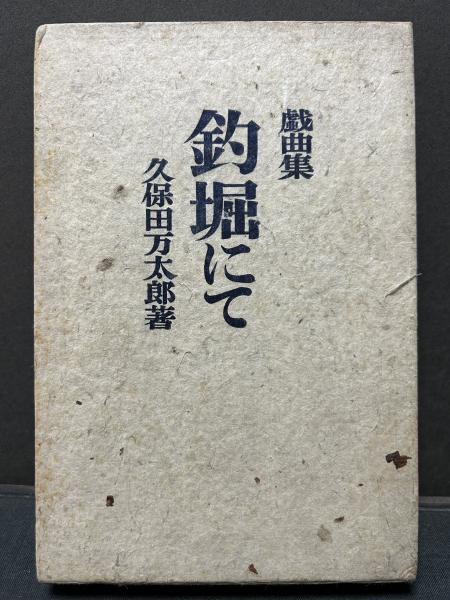 戯曲集
釣堀にて
久保田万太郎著